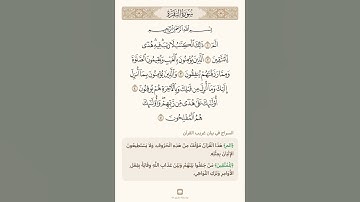 سُورَةُ البَقَرَةِ
بِسْمِ اللَّهِ الرَّحْمَٰنِ الرَّحِيمِ
الٓمٓ ١ ذَٰلِكَ ٱلْكِتَٰبُ لَا رَيْبَ ۛ فِيهِ ۛ هُدًى
لِّلْمُتَّقِينَ ٢ ٱلَّذِينَ يُؤْمِنُونَ بِٱلْغَيْبِ وَيُقِيمُونَ ٱلصَّلَوٰةَ
وَمِمَّا رَزَقْنَٰهُمْ يُنفِقُونَ ٣ وَٱلَّذِينَ يُؤْمِنُونَ بِمَآ أُنزِلَ
إِلَيْكَ وَمَآ أُنزِلَ مِن قَبْلِكَ وَبِٱلْءَاخِرَةِ هُمْ يُوقِنُونَ ٤
أُو۟لَٰٓئِكَ عَلَىٰ هُدًى مِّن رَّبِّهِمْ ۖ وَأُو۟لَٰٓئِكَ
هُمُ ٱلْمُفْلِحُونَ ٥
السراج في بيان غريب القرآن
﴿الم﴾ هَذَا القُرْآنُ مُؤَلَّفٌ مِنْ هَذِهِ الْحُرُوفِ، وَلَا يَسْتَطِيعُونَ
الإِتْيَانَ بِمِثْلِهِ.
﴿لِلْمُتَّقِينَ﴾ مَنْ جَعَلُوا بَيْنَهُمْ وَبَيْنَ عَذَابِ اللَّهِ وِقَايَةً بِفِعْلِ
الأَوَامِرِ وَتَرْكِ النَّوَاهِي.